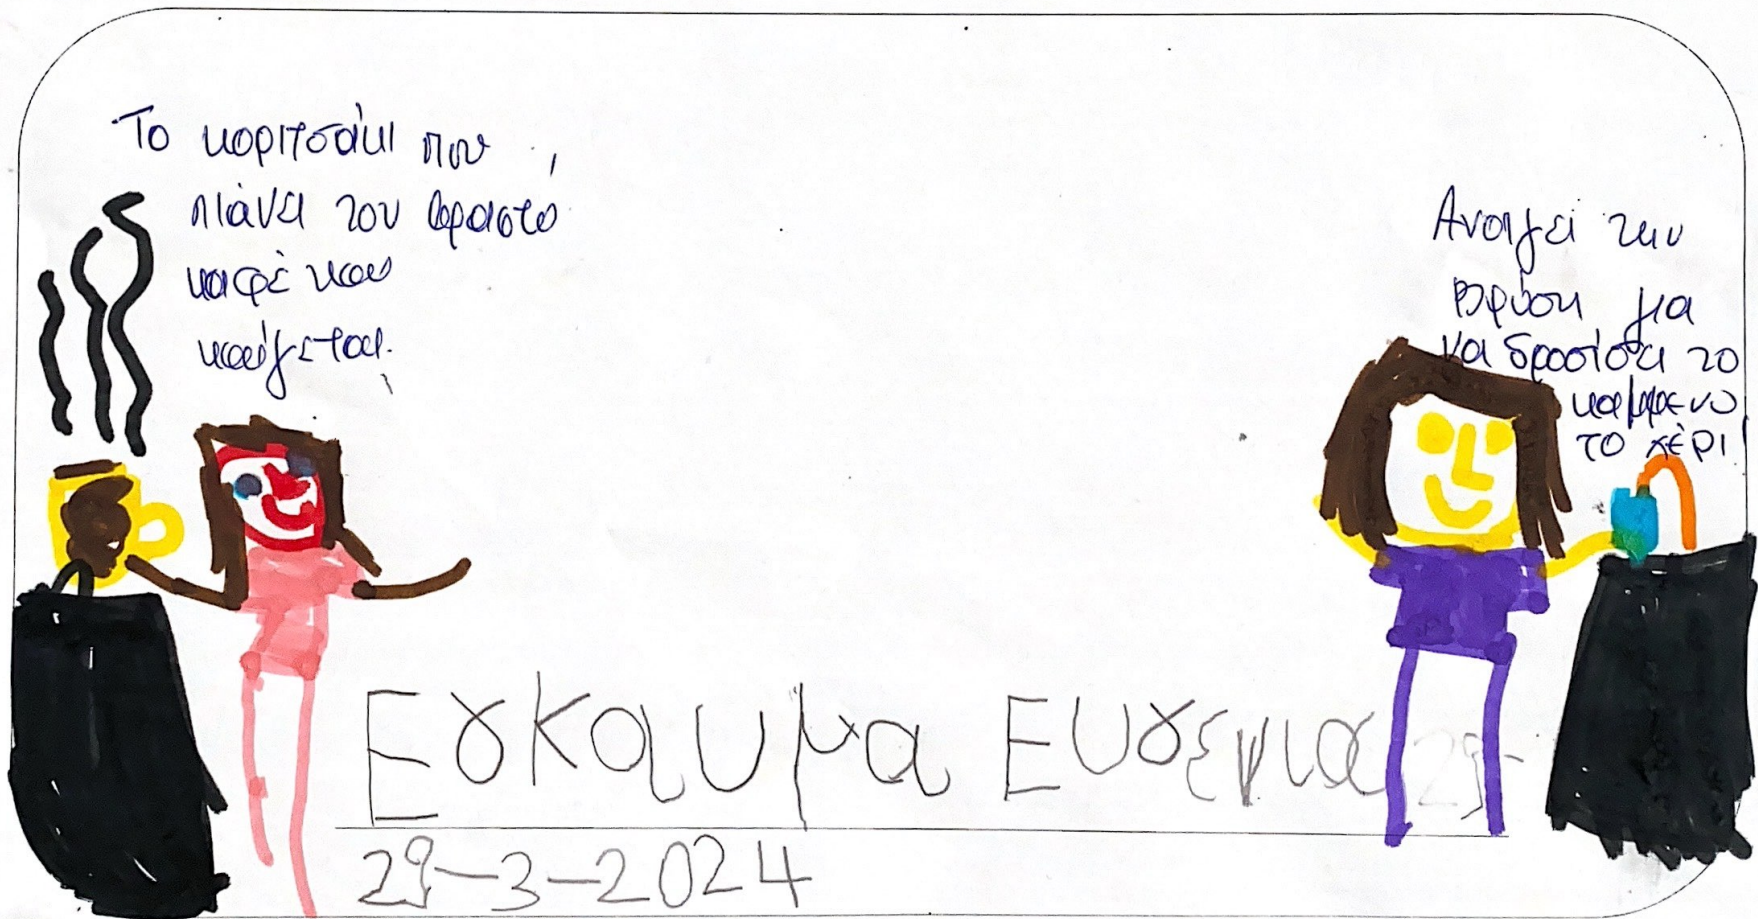 Το κοριτσάκι που
πιάνει τον βραστό
καφέ και
καίγεται.
Ανοιγει την
βρύση για
να δροσίσει το
καμμενο
το χέρι
Εγκαυμα Ευγενια 29-
29-3-2024